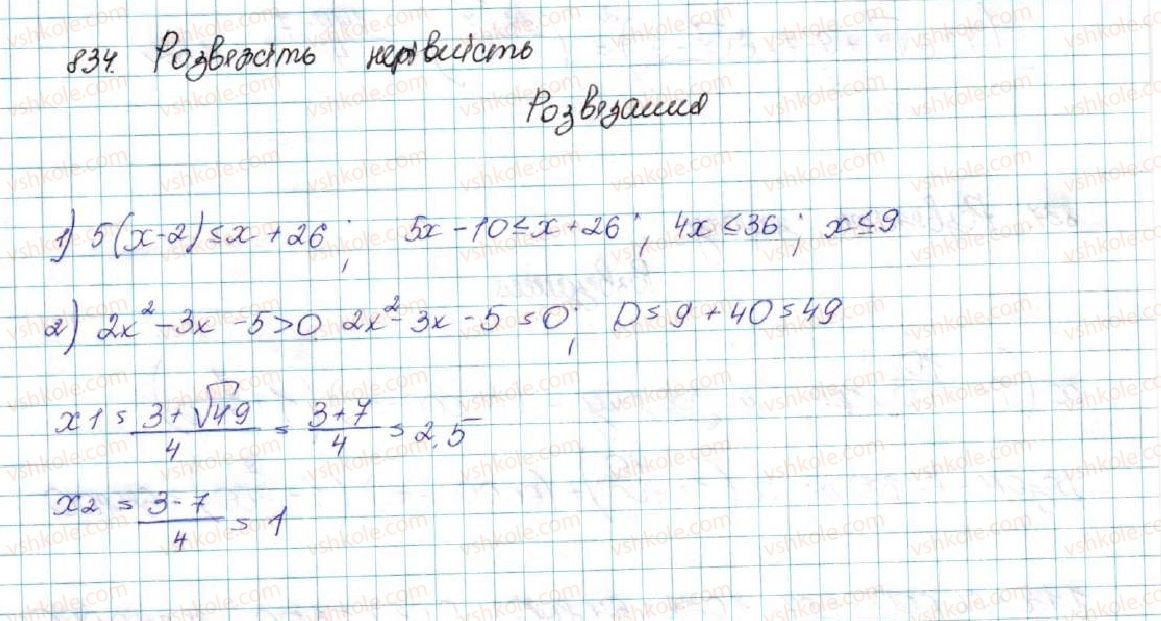 834. Розвяжіть нерівність
Розвязання
1) 5(x-2)≤x+26; 5x-10≤x+26; 4x≤36; x≤9
2) 2x²-3x-5>0 2x²-3x-5=0; D=9+40=49
x1=\frac{3+√49}{4}=\frac{3+7}{4}=2,5
x2=\frac{3-7}{4}=1